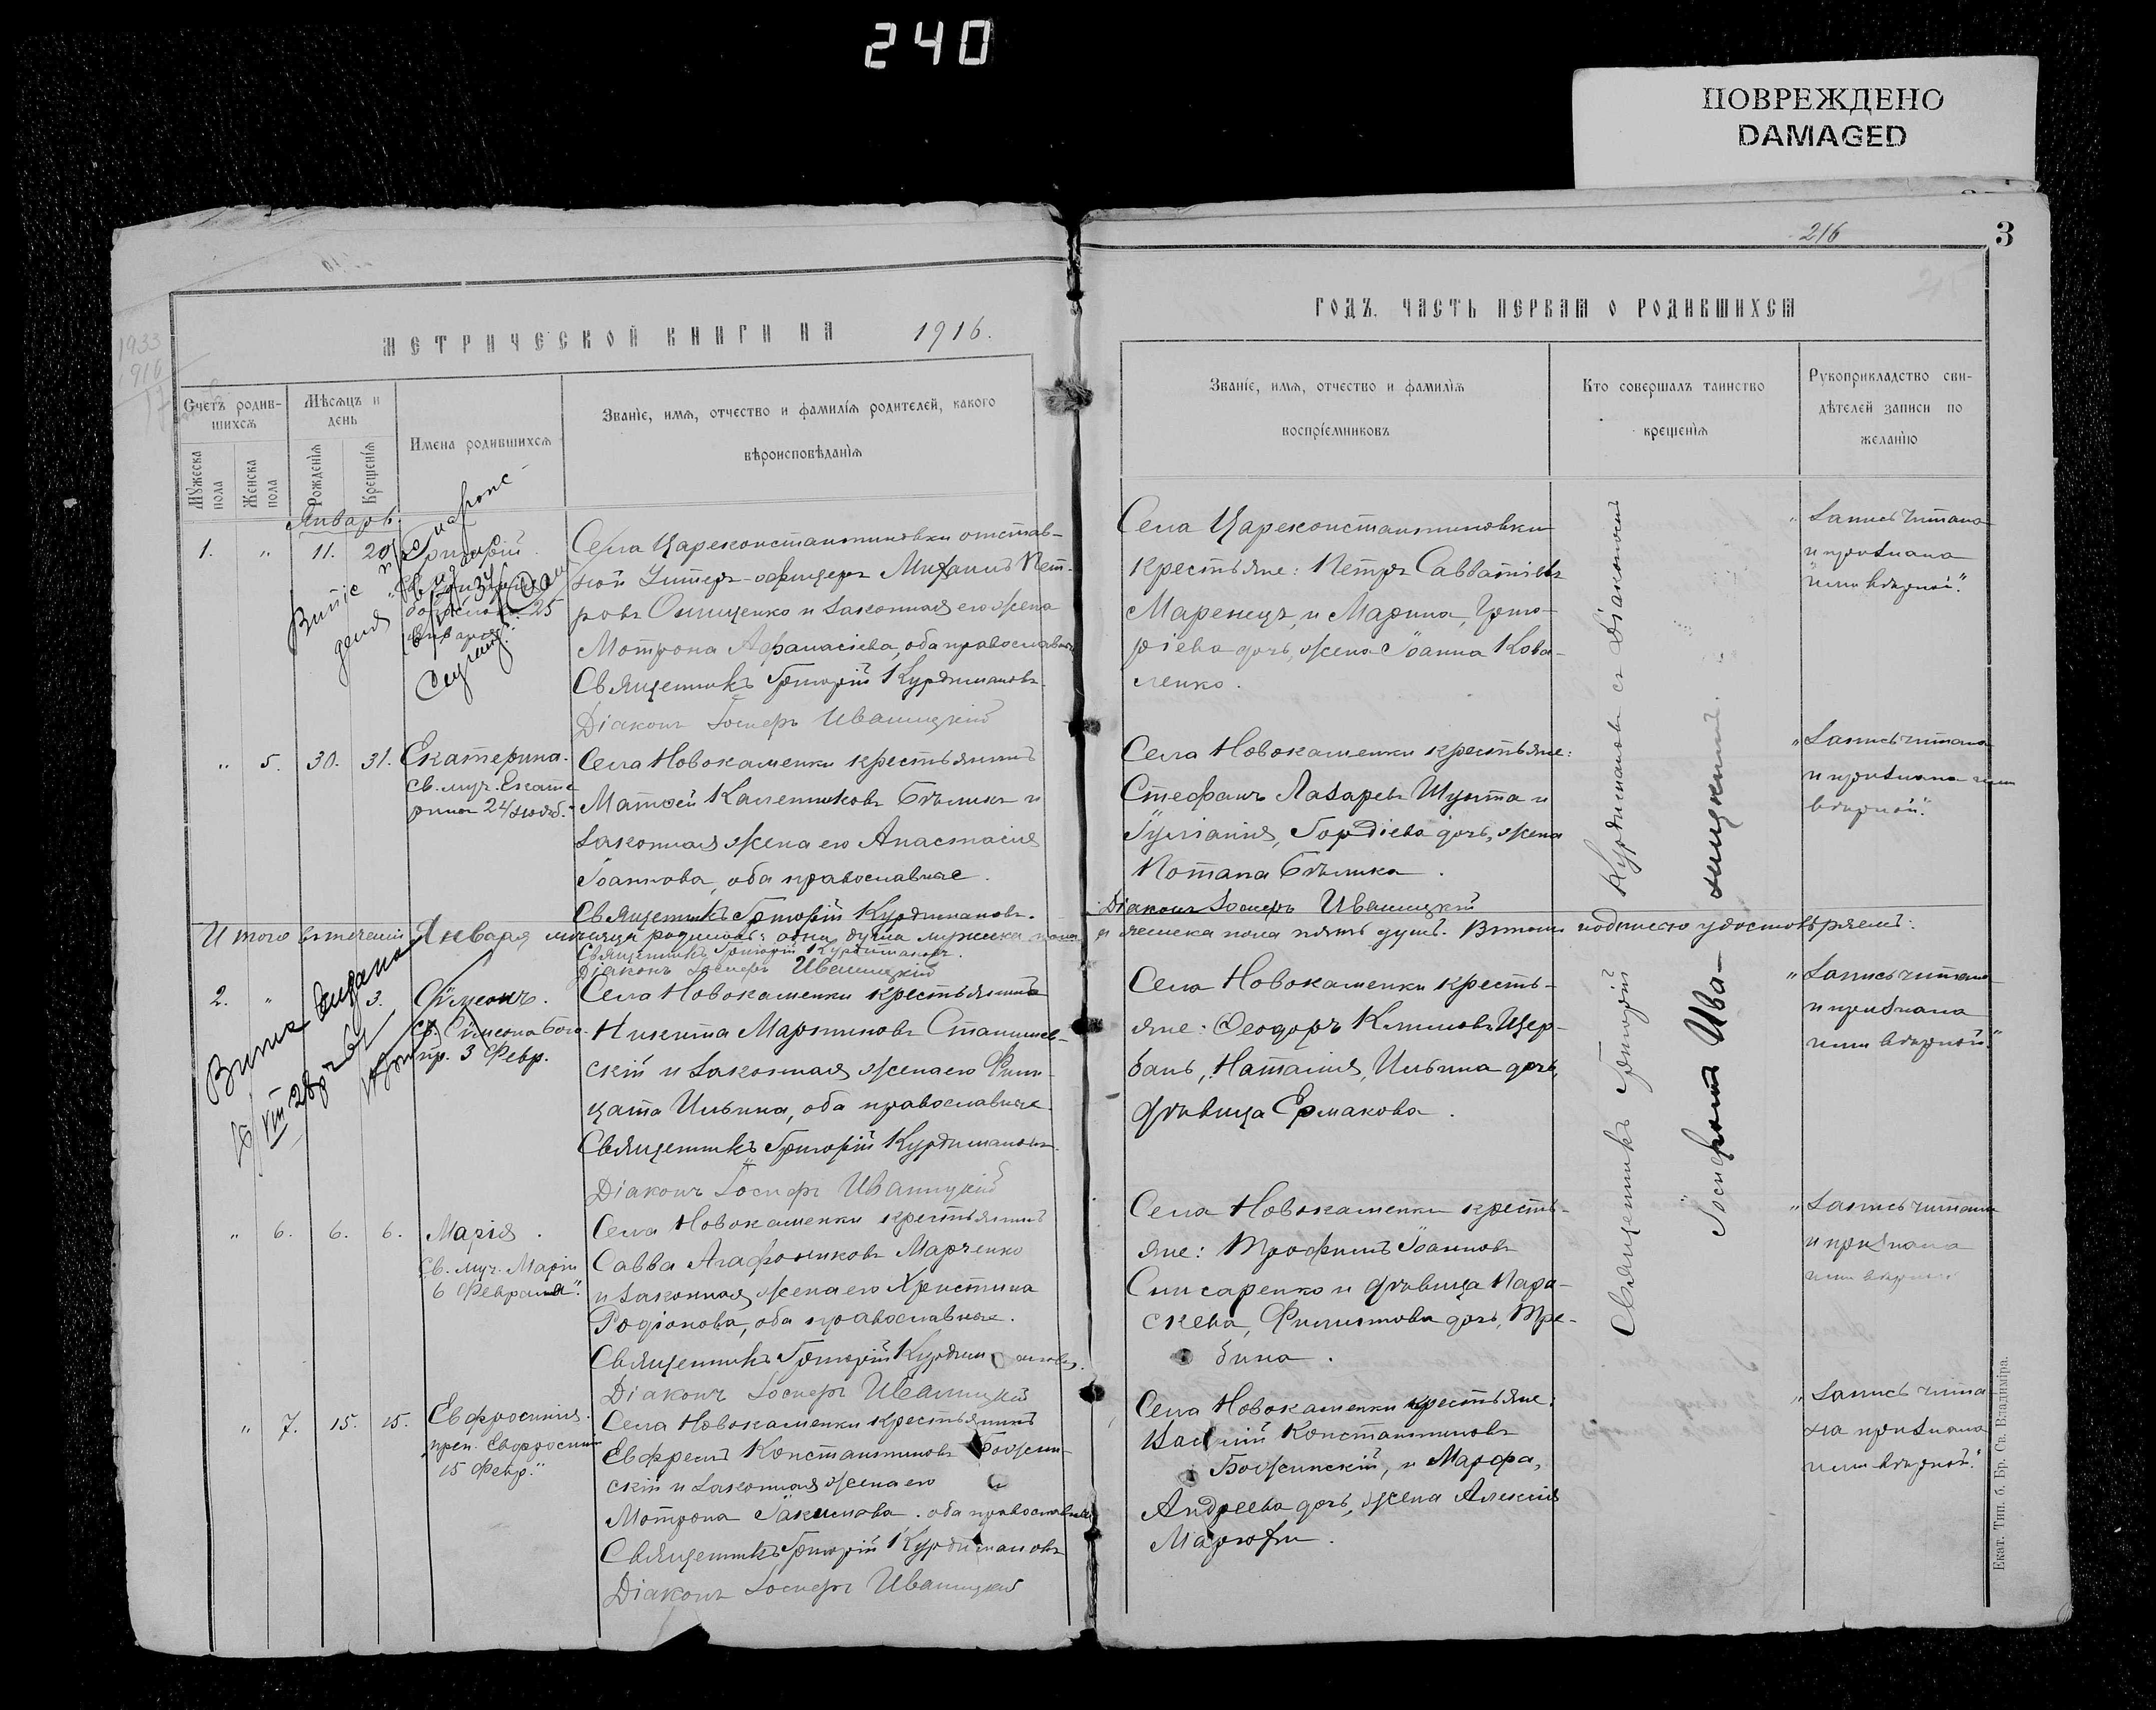 240
ПОВРЕЖДЕНО
DAMAGED
216
3
МЕТРИЧЕСКОЙ КНИГИ НА 1916.
ГОДЪ. ЧАСТЬ ПЕРВАЯ О РОДИВШИХСЯ
1933
1916
17
Счетъ родив-
шихся
Мужеска
пола
Женска
пола
Мѣсяцъ и
день
Рожденія
Крещенія
Имена родившихся
Званіе, имя, отчество и фамилія родителей, какого
вѣроисповѣданія
Званіе, имя, отчество и фамилія
воспріемниковъ
Кто совершалъ таинство
крещенія
Рукоприкладство сви-
дѣтелей записи по
желанію
Январь.
1. " 11. 20
Григорій.
25
Января.
Села Цареконстантиновки отстав-
ной Унтеръ-офицеръ Михаилъ Пет-
ровъ Онищенко и законная его жена
Мотрона Афанасіева, оба православные
Священникъ Григорій Курдимановъ.
Діаконъ Іосифъ Иваницкій
Села Цареконстантиновки
крестьяне: Петръ Савватіевъ
Маренецъ, и Марина, Григо-
ріева дочь, жена Іоанна Кова-
ленко.
" Запись читана
и признана
ими вѣрной".
" 5. 30. 31. Екатерина.
Св. муч. Екате
рины 24 нояб.
Села Новокаменки крестьянинъ
Матѳей Каленниковъ Бѣликъ и
законная жена его Анастасія
Іоаннова, оба православные.
Священникъ Григорій Курдимановъ.
Діаконъ Іосифъ Иваницкій
Села Новокаменки крестьяне:
Стефанъ Лазаревъ Шупта и
Іуліанія, Гордіева дочь, жена
Потапа Бѣлика.
" Запись читана
и признана ими
вѣрной".
Итого въ теченіи Января мѣсяца родилось: одна душа мужска пола
и женска пола пять душъ. Въ томъ подписью удостовѣряемъ:
Священникъ Григорій Курдимановъ.
Діаконъ Іосифъ Иваницкій
2. " 3. Сѵмеонъ.
Св. Сѵмеона Бого-
пр. 3 Февр.
Села Новокаменки крестьянинъ
Никита Мартиновъ Станишев-
скій и законная жена его Фили-
цата Ильина, оба православные.
Священникъ Григорій Курдимановъ.
Діаконъ Іосифъ Иваницкій
Села Новокаменки кресть-
яне: Ѳеодоръ Климовъ Щер-
бань, Наталія, Ильина дочь,
дѣвица Ермакова.
" Запись читана
и признана
ими вѣрной".
" 6. 6. 6. Марія.
Св. муч. Маріи
6 Февраля".
Села Новокаменки крестьянинъ
Савва Агафониковъ Марченко
и законная жена его Христина
Родіонова, оба православные.
Священникъ Григорій Курдимановъ.
Діаконъ Іосифъ Иваницкій
Села Новокаменки кресть-
яне: Трофимъ Іоанновъ
Слисаренко и дѣвица Пара-
скева, Филиппова дочь, Тре-
бина.
" Запись читана
и признана
ими вѣрной
" 7. 15. 15. Евфросинія.
преп. Евфросиніи
15 Февр."
Села Новокаменки крестьянинъ
Евфремъ Константиновъ Божин-
скій и законная жена его
Мотрона Іакимова. оба православные
Священникъ Григорій Курдимановъ
Діаконъ Іосифъ Иваницкій
Села Новокаменки крестьяне:
Василій Константиновъ
Божинскій, и Марфа,
Андреева дочь, жена Алексія
" Запись чита
на признана
ими вѣрной".
Священникъ Григорій Курдимановъ съ Діакономъ
Іосифомъ Ива-ницкимъ.
Екат. Тип. б. Бр. Св. Владиміра.